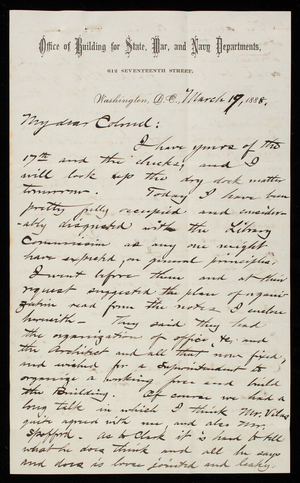 Office of Building for State, War, and Navy Departments,
612 SEVENTEENTH STREET,
Washington, D.C., March 19, 1888.
My dear Colonel:
I have yours of the
17th and the checks; and I
will look up the dry dock matter
tomorrow. Today I have been
pretty fully occupied and consider-
ably disgusted with the Library
Commission as any one might
have expected, on general principles.
I went before them and at their
request suggested the plan of organi-
zation read from the notes I enclose
herewith - They said they had
the organization of office &c. and
the Architect and all that now fixed,
and wished for a Superintendent to
organize a working force and build
the Building. Of course we had a
long talk in which I think Mr. Vilas
quite agreed with me, and also Mr.
Spofford. As to Clark it is hard to tell
what he does think and all he says
and does is loose jointed and leaky.